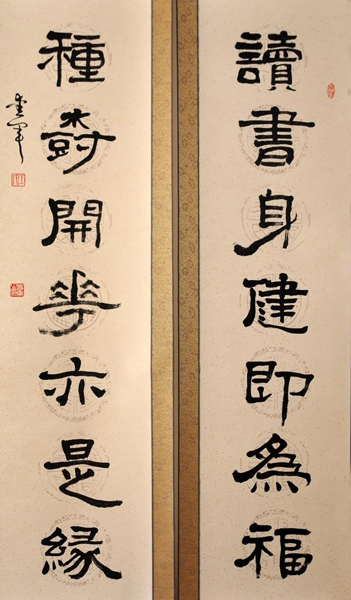 讀書身健即為福
種樹開花亦是緣